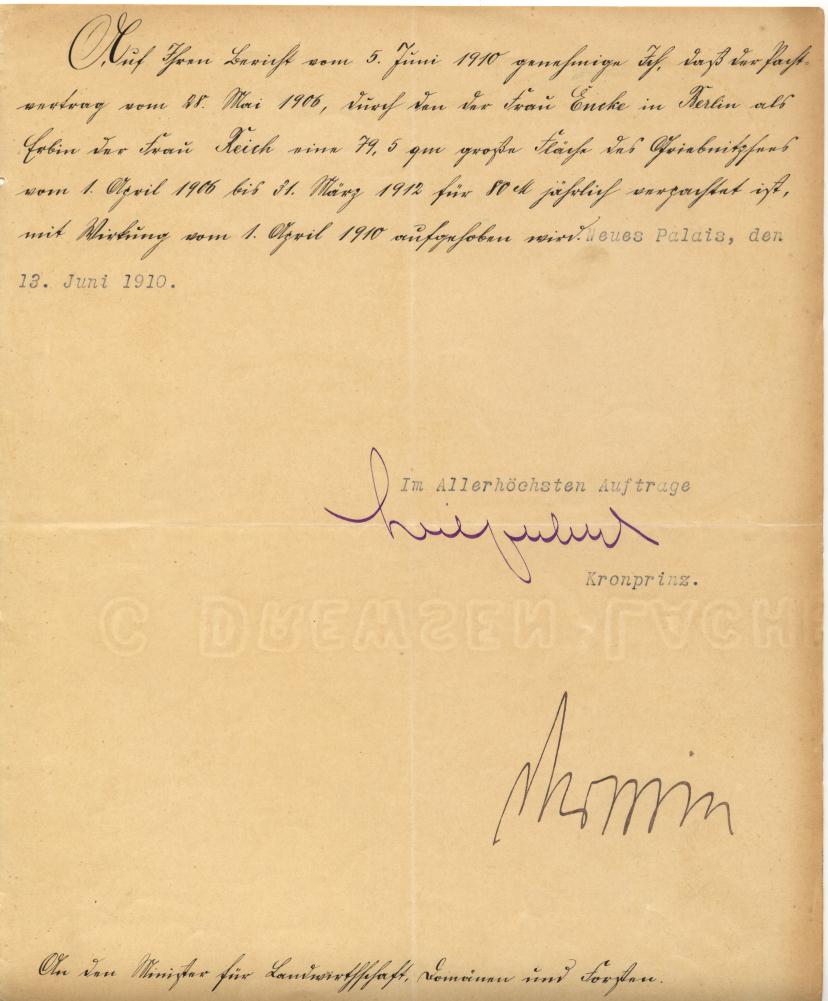 Auf Ihren Bericht vom 5. Juni 1910 genehmige Ich, daß der Pacht-
vertrag vom 28. Mai 1906, durch den der Frau Encke in Berlin als
Erbin der Frau Reich eine 79,5 qm große Fläche des Griebnitzsees
vom 1. April 1906 bis 31. März 1912 für 80 M jährlich verpachtet ist,
mit Wirkung vom 1. April 1910 aufgehoben wird. Neues Palais, den
13. Juni 1910.
Im Allerhöchsten Auftrage
Wilhelm
Kronprinz.
C DREWSEN LACH
An den Minister für Landwirthschaft, Domänen und Forsten.